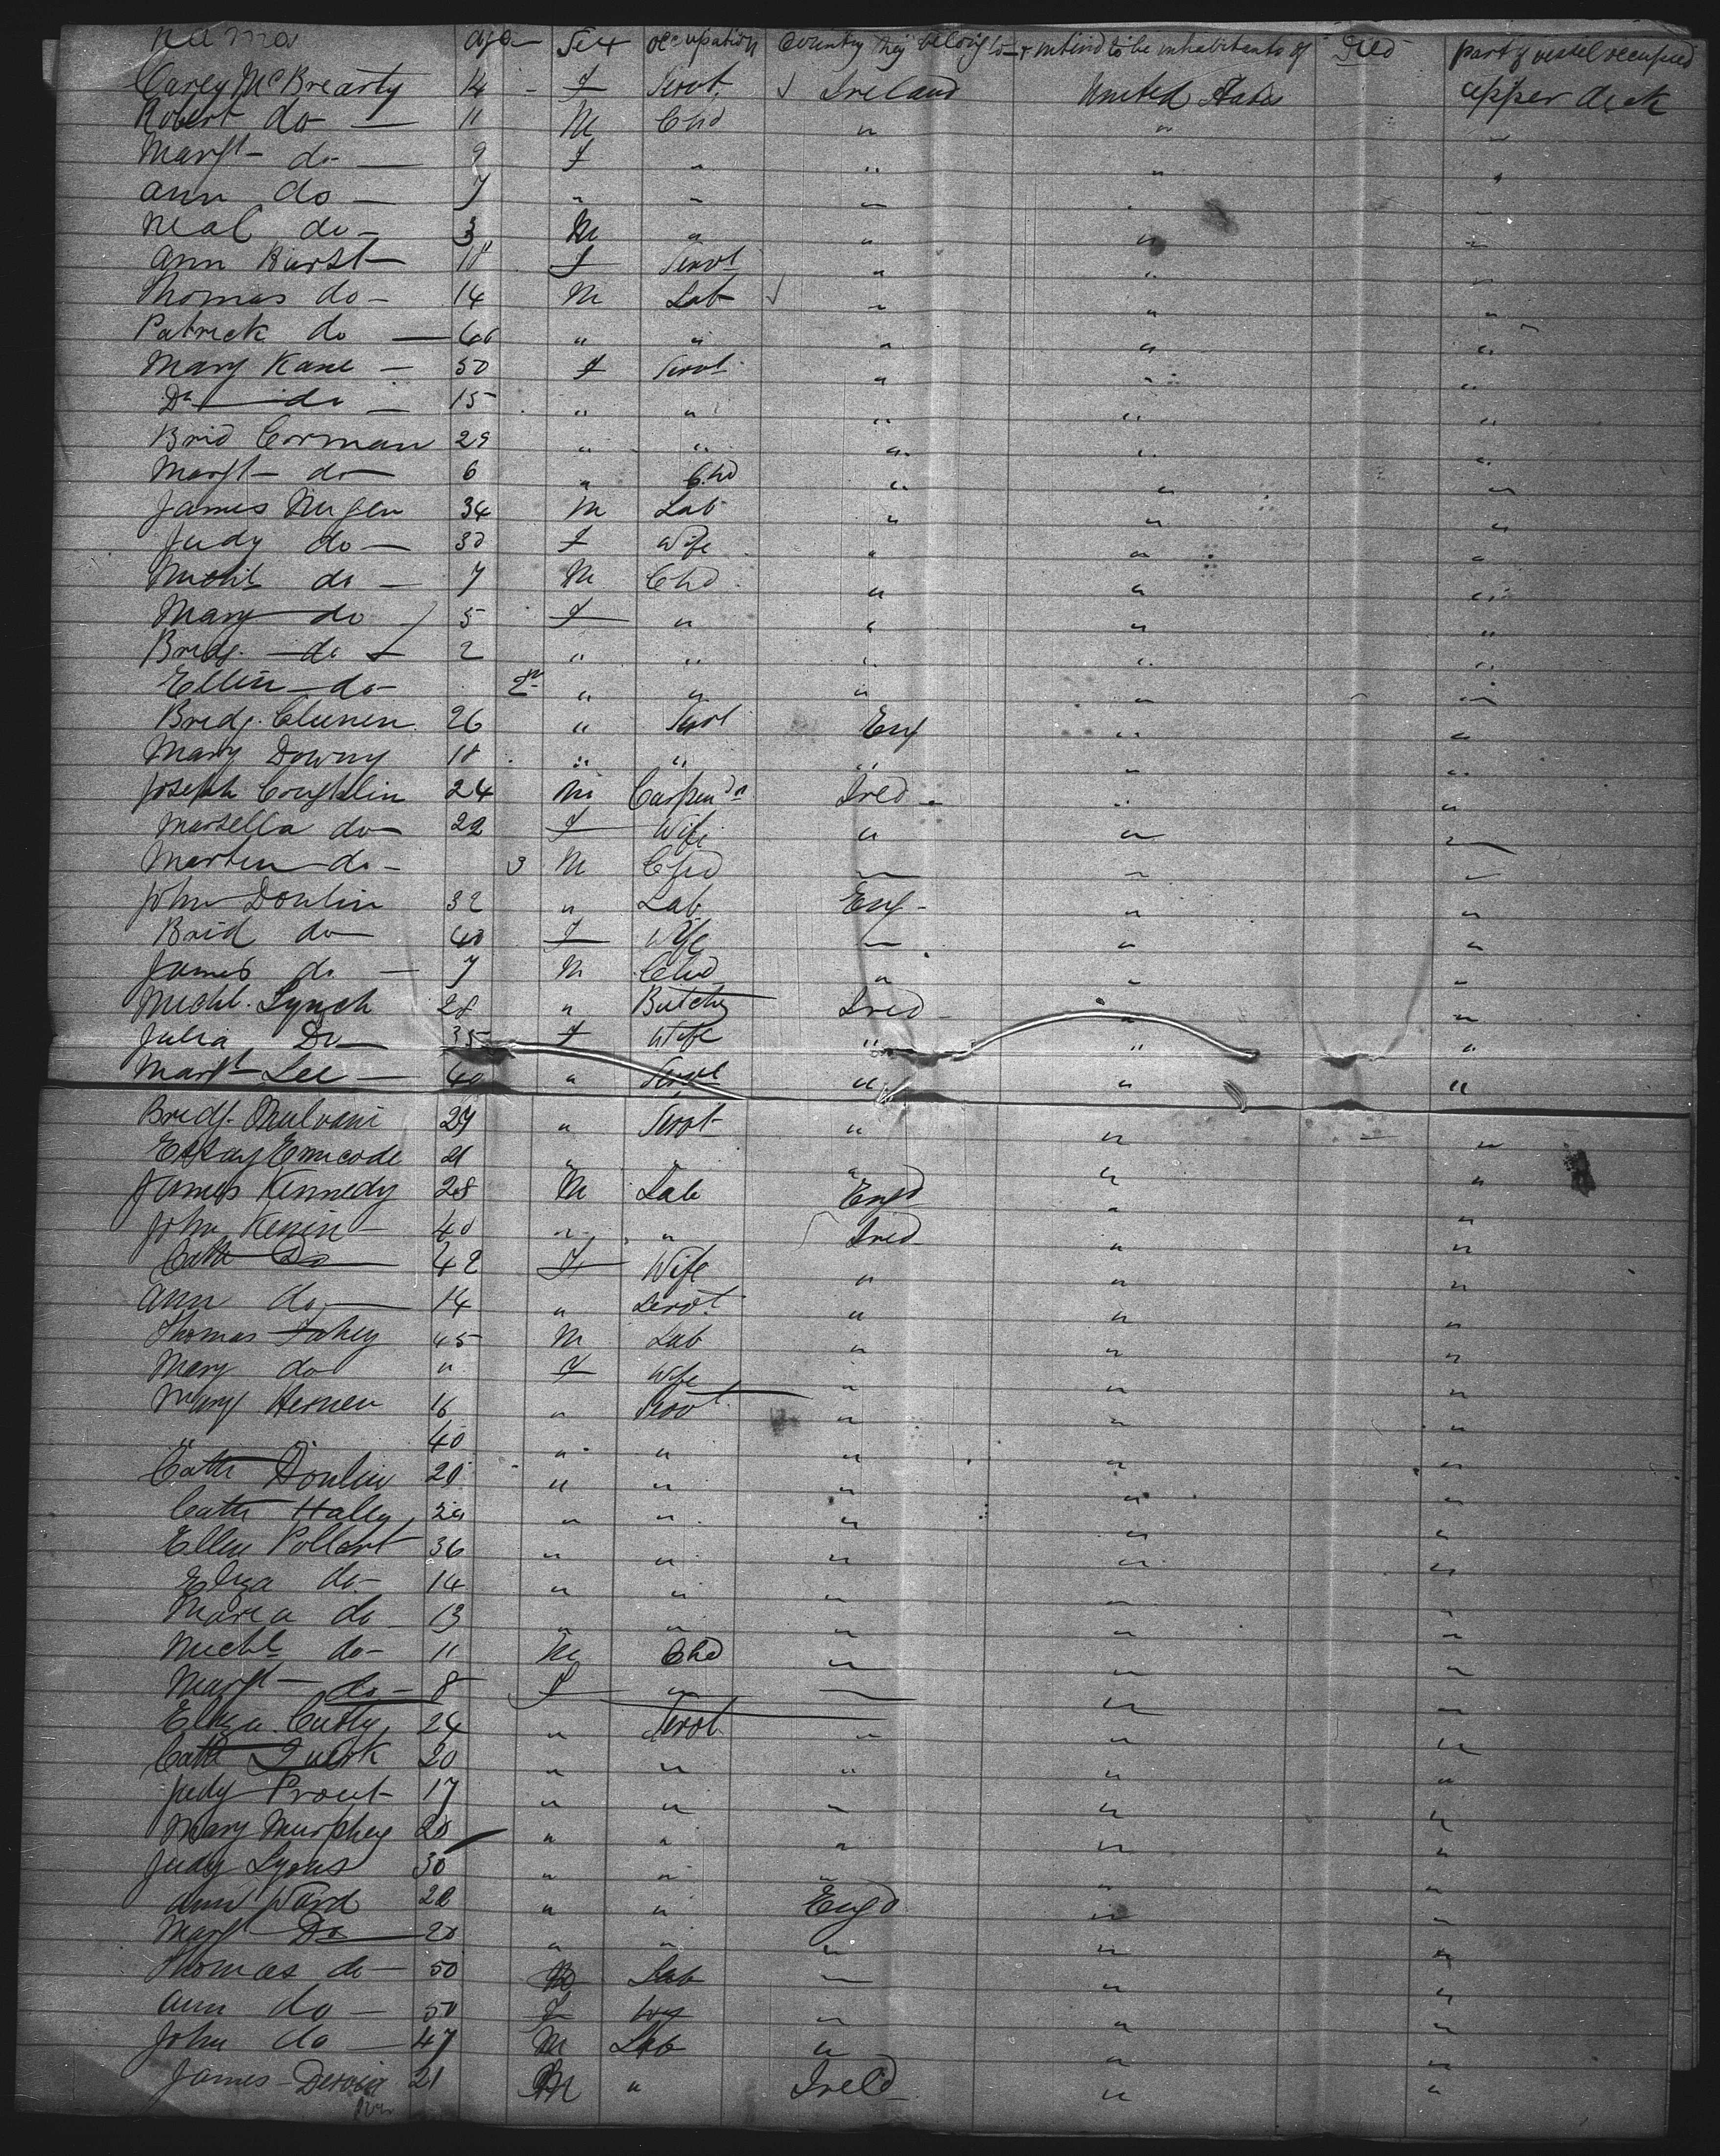 Name age Sex occupation Country they belong to & intend to be inhabitants of Died part of vessel occupied
Carey McBrearty 14 - F Servt. ✓ Ireland United States upper deck
Robert do — 11 M Chd " " "
Margt do — 9 F " " " "
Ann do — 7 " " " " "
Neal do — 3 M " " " "
Ann Hurst — 18 F Servt " " "
Thomas do — 14 M Lab ✓ " " "
Patrick do — 46 " " " " "
Mary Kane — 50 F Servt " " "
Do — do — 15 " " " " "
Brid Corman 29 " " " " "
Margt do 6 " Chd " " "
James Nugen 34 M Lab " " "
Judy do — 30 F Wife " " "
Michl do — 7 M Chd " " "
Mary do 5 F " " " "
Bridg. do 2 " " " " "
Ellin do " " " " "
Bridg. Clunen 26 " Servt Eng " "
Mary Downy 18 " " " " "
Joseph Coughlin 24 M Carpen Ireld " "
Marsella do 22 F Wife " " "
Marten do 3 M Chd " " "
John Donlin 32 " Lab Eng " "
Brid do 40 F Wife " " "
James do — 7 M Chd " " "
Michl. Lynch 28 " Butcher Ireld " "
Julia Do 35 F Wife " " "
Margt Lee — 40 " Servt " " "
Bridg. Mulvani 27 " Servt " " "
21 " " " " "
James Kennedy 28 M Lab Engd " "
John Kenin 40 " " Ireld " "
Cath Do 42 F Wife " " "
Ann do — 14 " Servt. " " "
Thomas Fahey 45 M Lab " " "
Mary do " F Wife " " "
Mary Hernen 16 " Servt " " "
" " 40 " " " " "
Cath Donlin 20 " " " " "
Cath Haley " " " " "
Ellen Pollert 36 " " " " "
Eliza do 14 " " " " "
Maria do 13 " " " " "
Michl do 11 M Chd " " "
Margt do 8 F " " " "
Eliza 24 " Servt " " "
Cath Quirk 20 " " " " "
Judy Prout 17 " " " " "
Mary Murphey 20 " " " " "
Judy Lyons 30 " " " " "
Ann Ward " " Engd " "
Margt Do 20 " " " " "
Thomas do 50 M Lab " " "
Ann do — 50 F Wif " " "
John do — 47 M Lab " " "
James 21 M " Ireld " "